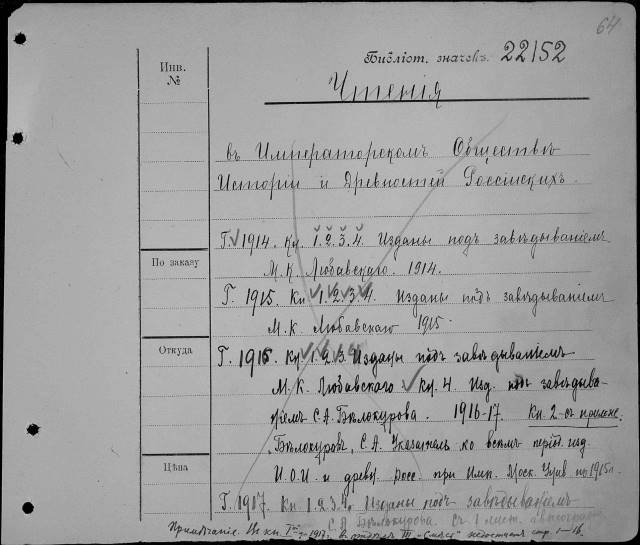 64
Библіот. значекъ 22/52
Инв.
№
Чтенія
въ Императорскомъ Обществѣ
Исторіи и Древностей Россійскихъ.
Г. 1914. Кн. 1. 2. 3. 4. Изданы подъ завѣдываніемъ
М. К. Любавскаго. 1914.
По заказу
Г. 1915. Кн. 1. 2. 3. 4. Изданы подъ завѣдываніемъ
М. К Любавскаго 1915.
Откуда
Г. 1916. Кн. 1. 2. 3. Изданы подъ завѣдываніемъ
М. К. Любавскаго Кн. 4. Изд. подъ завѣдыва-
ніемъ С. А. Бѣлокурова. 1916-17. Кн. 2-съ прилож.
Бѣлокуровъ, С. А. Указатель ко всѣмъ період. изд.
Цѣна
И. О. И. и древ. росс. при Имп. Моск. Унив по 1915 г.
Г. 1917. Кн 1. 2. 3. 4. Изданы подъ завѣдываніемъ
С. А. Бѣлокурова. Съ 1 лист. автограф
Примѣчаніе. Въ кн. 1917. въ отдѣлѣ III "Смѣсь" недостаетъ стр. 1-16.